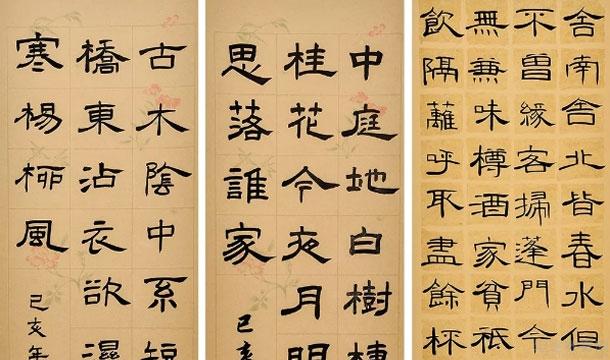 古木陰中系短
橋東沾衣欲濕
寒楊柳風
己亥年
中庭地白樹棲
桂花今夜月明
思落誰家
己亥
舍南舍北皆春水但
不曾緣客掃蓬門今
無兼味樽酒家貧祗
飲隔蘺呼取盡餘杯